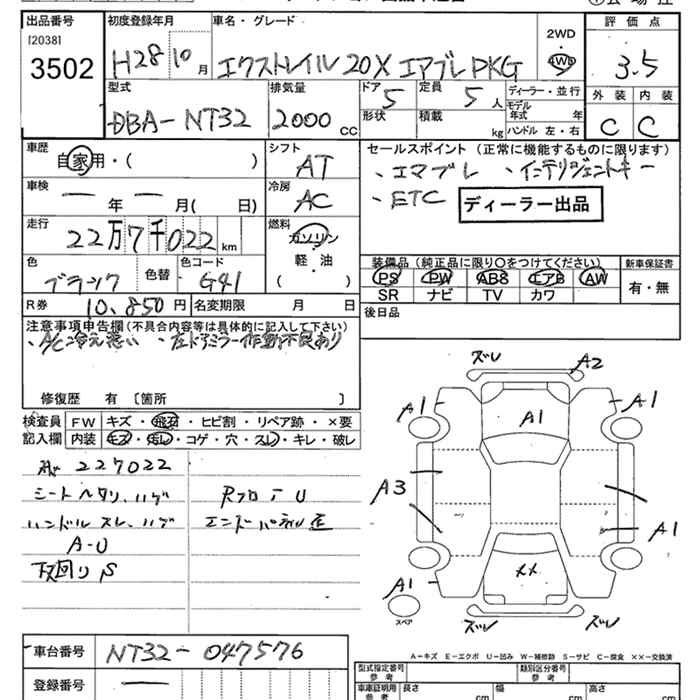 出品番号 初度登録年月 車名・グレード 2WD・4WD 評価点
[2038]
3502 H28年10月 エクストレイル 20X エマブレPKG 3.5
型式 排気量 ドア 定員 ディーラー・並行 外装 内装
DBA-NT32 2000cc 5 5人 モデル年式 年 C C
形状 積載 kg ハンドル 左・右
車歴 自家用・( ) シフト AT セールスポイント(正常に機能するものに限ります)
車検 ー年ー月(日) 冷房 AC 、エマブレ 、インテリジェントキー
、ETC ディーラー出品
走行 22万7千022km 燃料 ガソリン・軽・油( )
装備品(純正品に限り○をつけてください) 新車保証書
色 ブラック 色替 色コード G41 PS PW ABS エアB AW 有・無
SR ナビ TV カワ
R券 10,850円 名変期限 月 日 後日品
注意事項申告欄(不具合内容等は具体的に記入して下さい)
、A/C冷え悪い 、左ドアミラー作動不良あり
修復歴 有 〔箇所 〕
検査員 FW キズ・飛石・ヒビ割・リペア跡・×要
記入欄 内装 キズ・汚レ・コゲ・穴・スレ・キレ・破レ
227022
シートヘタリ、ハゲ RフロアU
ハンドルスレ、ハゲ エンドパネル歪
A-U
下回りS
ズレ A2
A1 A1 A1
A3 A1
A1 ××
スペア ズレ ズレ
A-キズ E-エクボ U-凹み W-補修跡 S-サビ C-腐食 ××-交換済
車台番号 NT32-047576 型式指定番号 参考 類別区分番号 参考
登録番号 ー 車庫証明用 参考 長さ cm 幅 cm 高さ cm